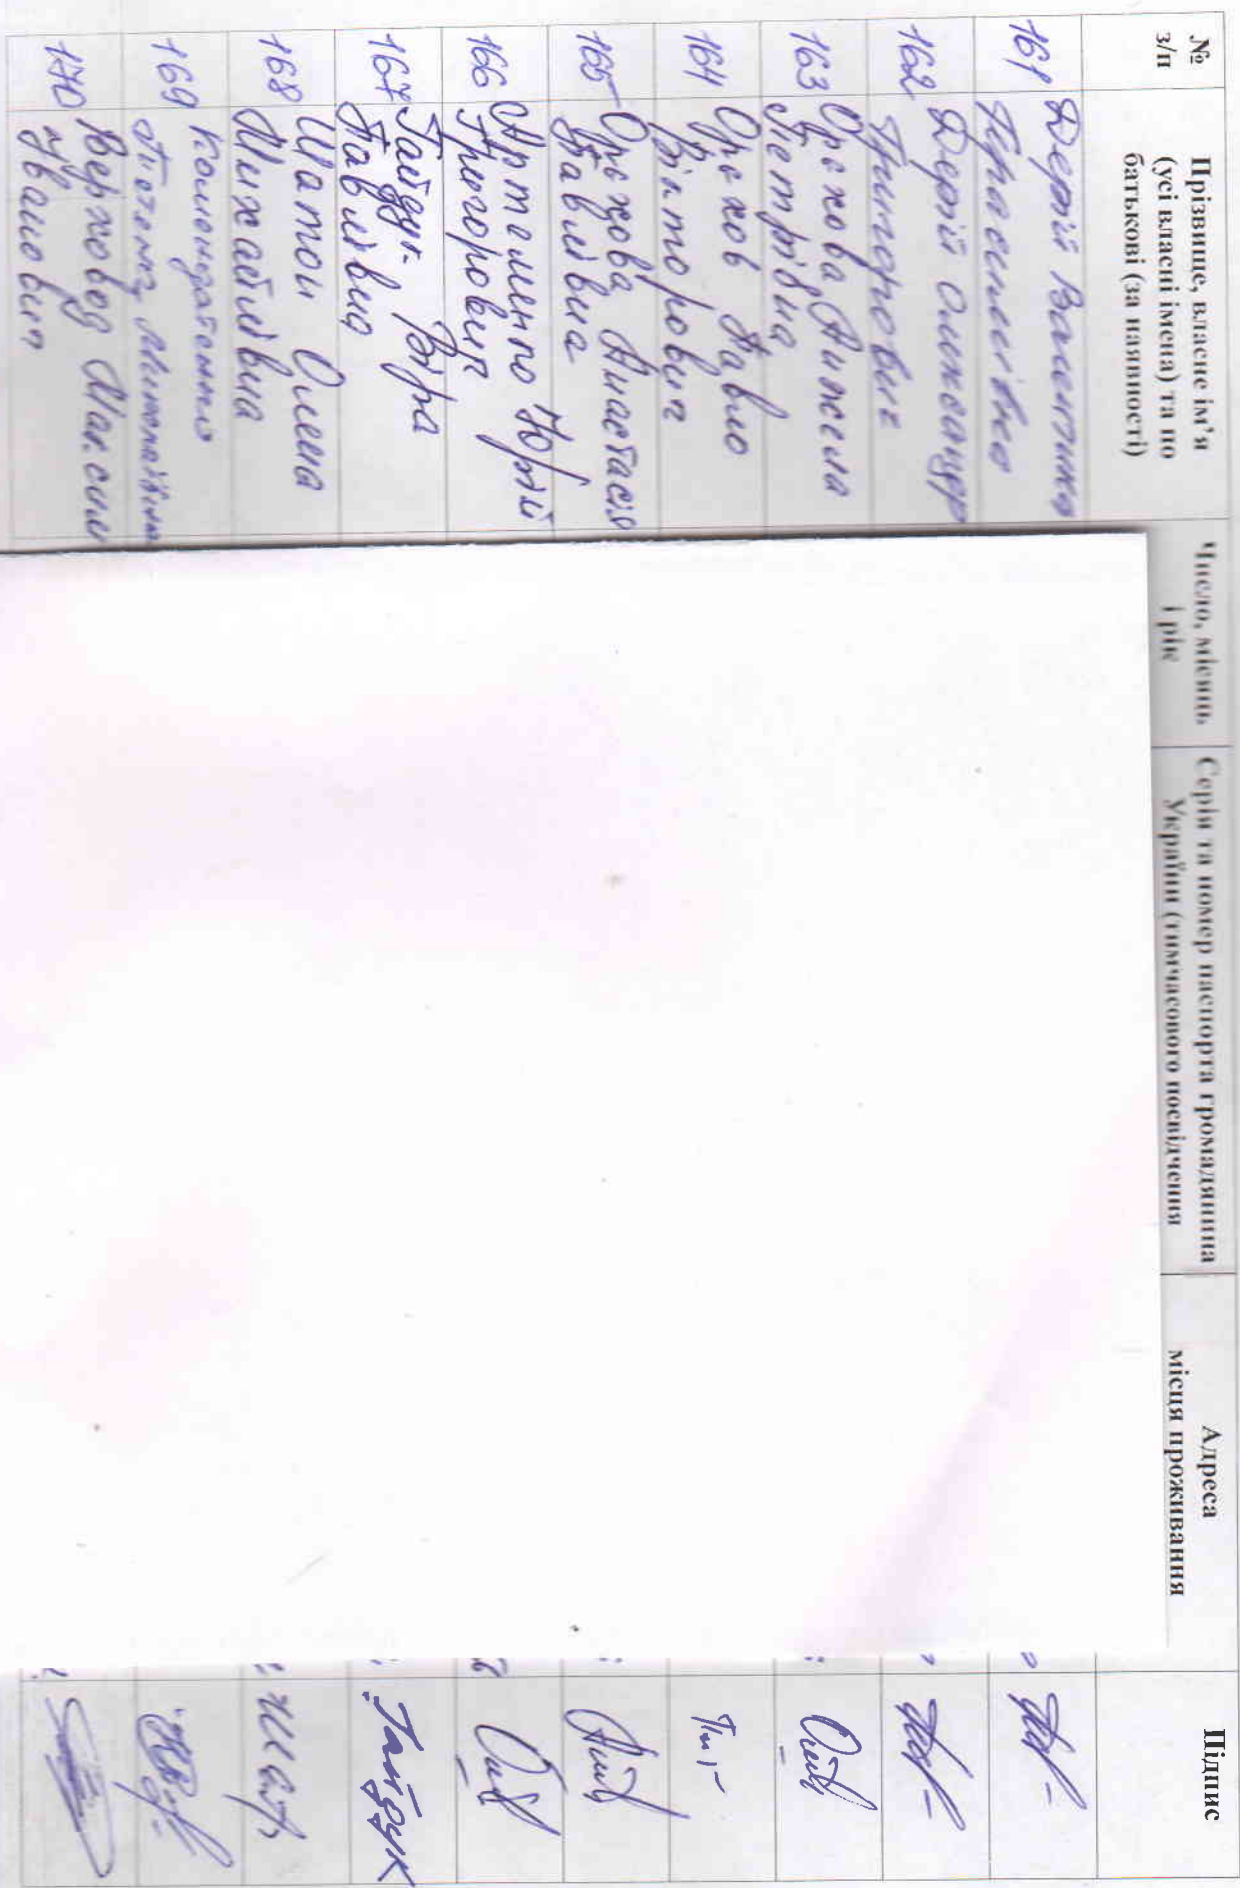 №
з/п
Прізвище, власне ім’я
(усі власні імена) та по
батькові (за наявності)
Число, місяць
і рік
Серія та номер паспорта громадянина
України (тимчасового посвідчення
Адреса
місця проживання
Підпис
161 Дерій Валентина
162 Дерій Олександр
Григорович
163 Орєхова Анжела
Петрівна
164 Орєхов Павло
Вікторович
165 Орєхова Анастасія
Павлівна
166 Артеменко Юрій
Григорович
167 Гайдук Віра
Павлівна
Гайдук
168 Шапон Олена
Михайлівна
169
Миколаївна
170 Верховод Максим
Іванович